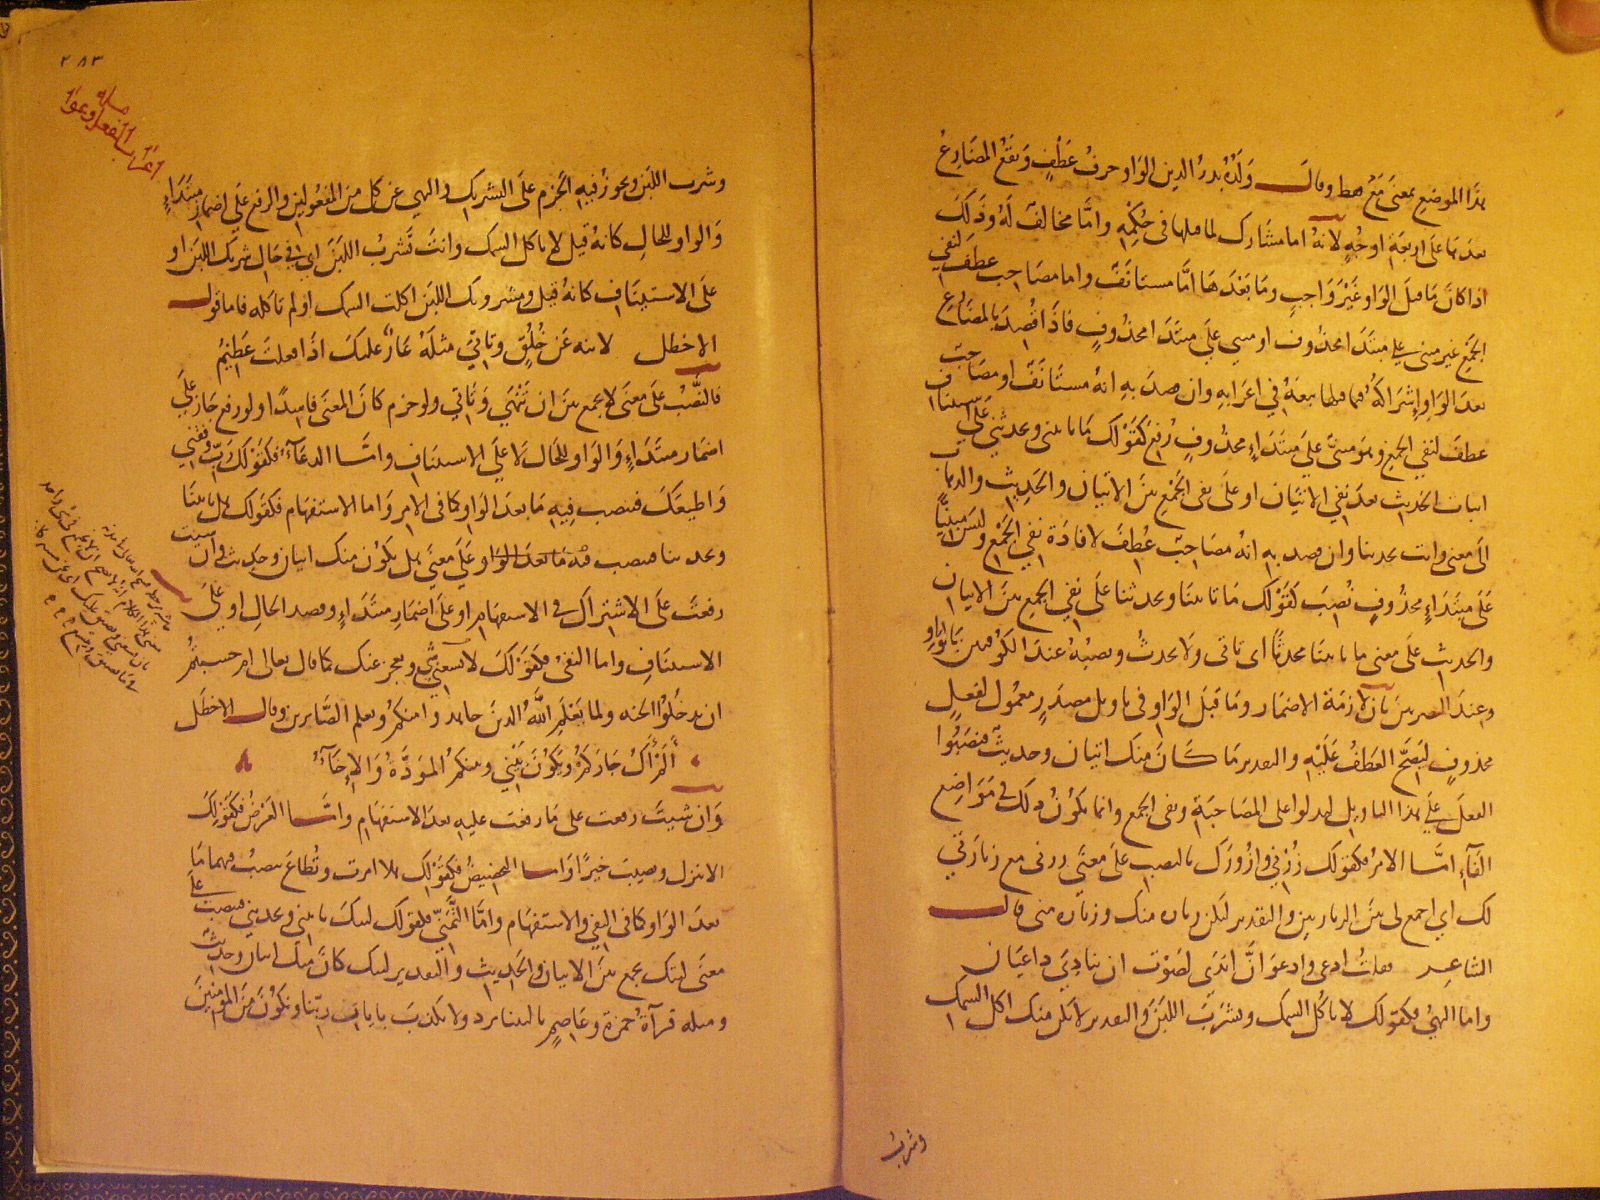 هذا الموضع بمعنى مع فقط وقال ولده بدر الدين الواو حرف عطف وتقع المضارع
بعدها على اربعة اوجه لانه اما مشارك لما قبلها في حكمه واما مخالف له وذلك
اذا كان ما قبل الواو غير واجب وما بعدها اما مستانف واما مصاحب عطف لنفي
الجمع غير مبني على مبتدا محذوف او مبني على مبتدا محذوف فاذا قصد بالمضارع
بعد الواو اشراكه فما قبلها تبعه في اعرابه وان قصد به انه مستانف او مصاحب
عطف لنفي الجمع وهو مبني على مبتداء محذوف رفع كقولك ما تاتيني وتحدثني على استيناف
اثبات الحديث بعد نفي الاتيان او على نفي الجمع بين الاتيان والحديث
الى معنى وانت تحدثنا وان قصد به انه مصاحب عطف لافادة نفي الجمع وليس مبنيا
على مبتداء محذوف نصب كقولك ما تاتينا وتحدثنا على نفي الجمع بين الاتيان
والحديث على معنى ما تاتينا محدثا اى تاتى ولا تحدث ونصبه عند الكوفيين بالواو
وعند البصريين بان لازمة الاضمار وما قبل الواو في تاويل مصدر معمول لفعل
محذوف ليصح العطف عليه والتقدير ما كان منك اتيان وحديث فنصبوا
الفعل على هذا التاويل ليدلوا على المصاحبة ونفى الجمع وانما يكون ذلك في مواضع
الفاء اما الامر فكقولك زرني وازورك بالنصب على معنى زرني مع زيارتي
لك اي اجمع لي بين الزيارتين والتقدير لتكن زيارة منك وزيارة مني قال
الشاعر فقلت ادعى وادعو ان اندى لصوت ان ينادي داعيان
واما النهي فكقولك لا تاكل السمك وتشرب اللبن والتقدير لا يكن منك اكل السمك
وشرب
٢٨٣
مسله
وشرب اللبن ويجوز فيه الجزم على التشريك والنهي عن كل من المفعولين والرفع على اضمار مبتداء
والواو للحال كانه قيل لا تاكل السمك وانت تشرب اللبن اي في حال شربك اللبن او
على الاستيناف كانه قيل ومشروبك اللبن اكلت السمك او لم تاكله فاما قول
الاخطل لا تنه عن خلق وتاتي مثله عار عليك اذا فعلت عظيم
فالنصب على معنى لا تجمع بين ان تنهي وتاتي ولو جزم كان المعنى فاسدا ولو رفع جاز على
اضمار مبتداء والواو للحال لا على الاستيناف واما الدعاء فكقولك رب وفقني
واطيعك فتنصب فيه ما بعد الواو كما فى الامر واما الاستفهام فكقولك هل تاتينا
وتحدثنا فتنصب فيه ما بعد الواو على معنى هل يكون منك اتيان وحديث وان شيت
رفعت على الاشتراك في الاستفهام او على اضمار مبتداء وقصد الحال او على
الاستيناف واما النفى فكقولك لا يسعني شي ويعجز عنك كما قال تعالى ام حسبتم
ان تدخلوا الجنه ولما يعلم الله الذين جاهدوا منكم ويعلم الصابرين وقال الاخطل
الم اك جاركم ويكون بيني وبينكم المودة والإخاء
وان شيت رفعت على ما رفعت عليه بعد الاستفهام واما العرض فكقولك
الا تنزل وتصيب خيرا واما التحضيض فكقولك هلا امرت وتطاع تنصب فيهما ما
بعد الواو كما فى النفي والاستفهام واما التمني فكقولك ليتك تاتيني وتحدثني فتنصب على
معنى ليتك تجمع بين الاتيان والحديث والتقدير ليت كان منك اتيان وحديث
ومثله قرآءة حمزة وعاصم يا ليتنا نرد ولا نكذب بايات ربنا ونكون من المؤمنين